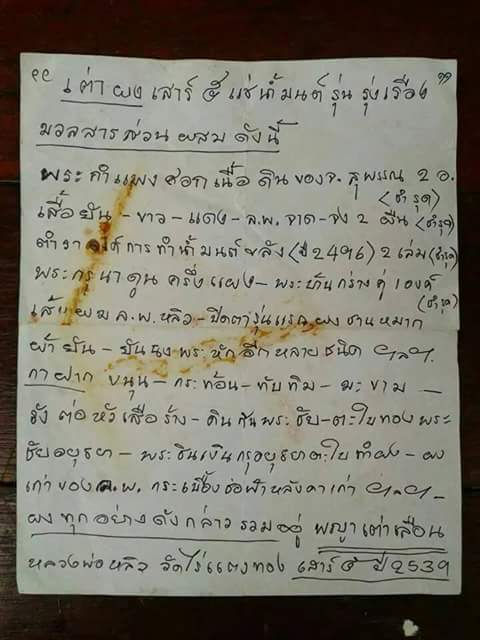 " เต่า ผง เสาร์ ๕ แช่น้ำมนต์ รุ่น รุ่งเรือง "
มวลสารส่วนผสม ดังนี้
พระกำแพงศอกเนื้อดินของจ. สุพรรณ 2 อ. (ชำรุด)
เสื้อยันต์ - ขาว - แดง - ล.พ. จาด - จง 2 ผืน (ชำรุด)
ตำรา การทำน้ำมนต์ขลัง (ปี 2496) 2 เล่ม (ชำรุด)
พระกรุนาดูน ครึ่งแผง - พระขุนกร่าง คู่ องค์ (ชำรุด)
เส้นผม ล.พ. หลิว - ปิดตารุ่นแรก ผง ชานหมาก
ผ้ายันต์ - พระหักอีกหลายชนิด ฯลฯ.
กาฝาก ขนุน - กระท้อน - ทับทิม - มะขาม -
รัง ต่อ หัวเสือร้าง - ดินก้นพระชัย - ตะไบทองพระ
ชัยอยุธยา - พระชินเงินกรุอยุธยาตะไบทำผง - ผง
เก่าของ ล.พ. กระเบื้องช่อฟ้าหลังคาเก่า ฯลฯ -
ผงทุกอย่างดังกล่าวรวมอยู่ พญาเต่าเลือน
หลวงพ่อหลิว วัดไร่แตงทอง เสาร์ ๕ ปี 2539